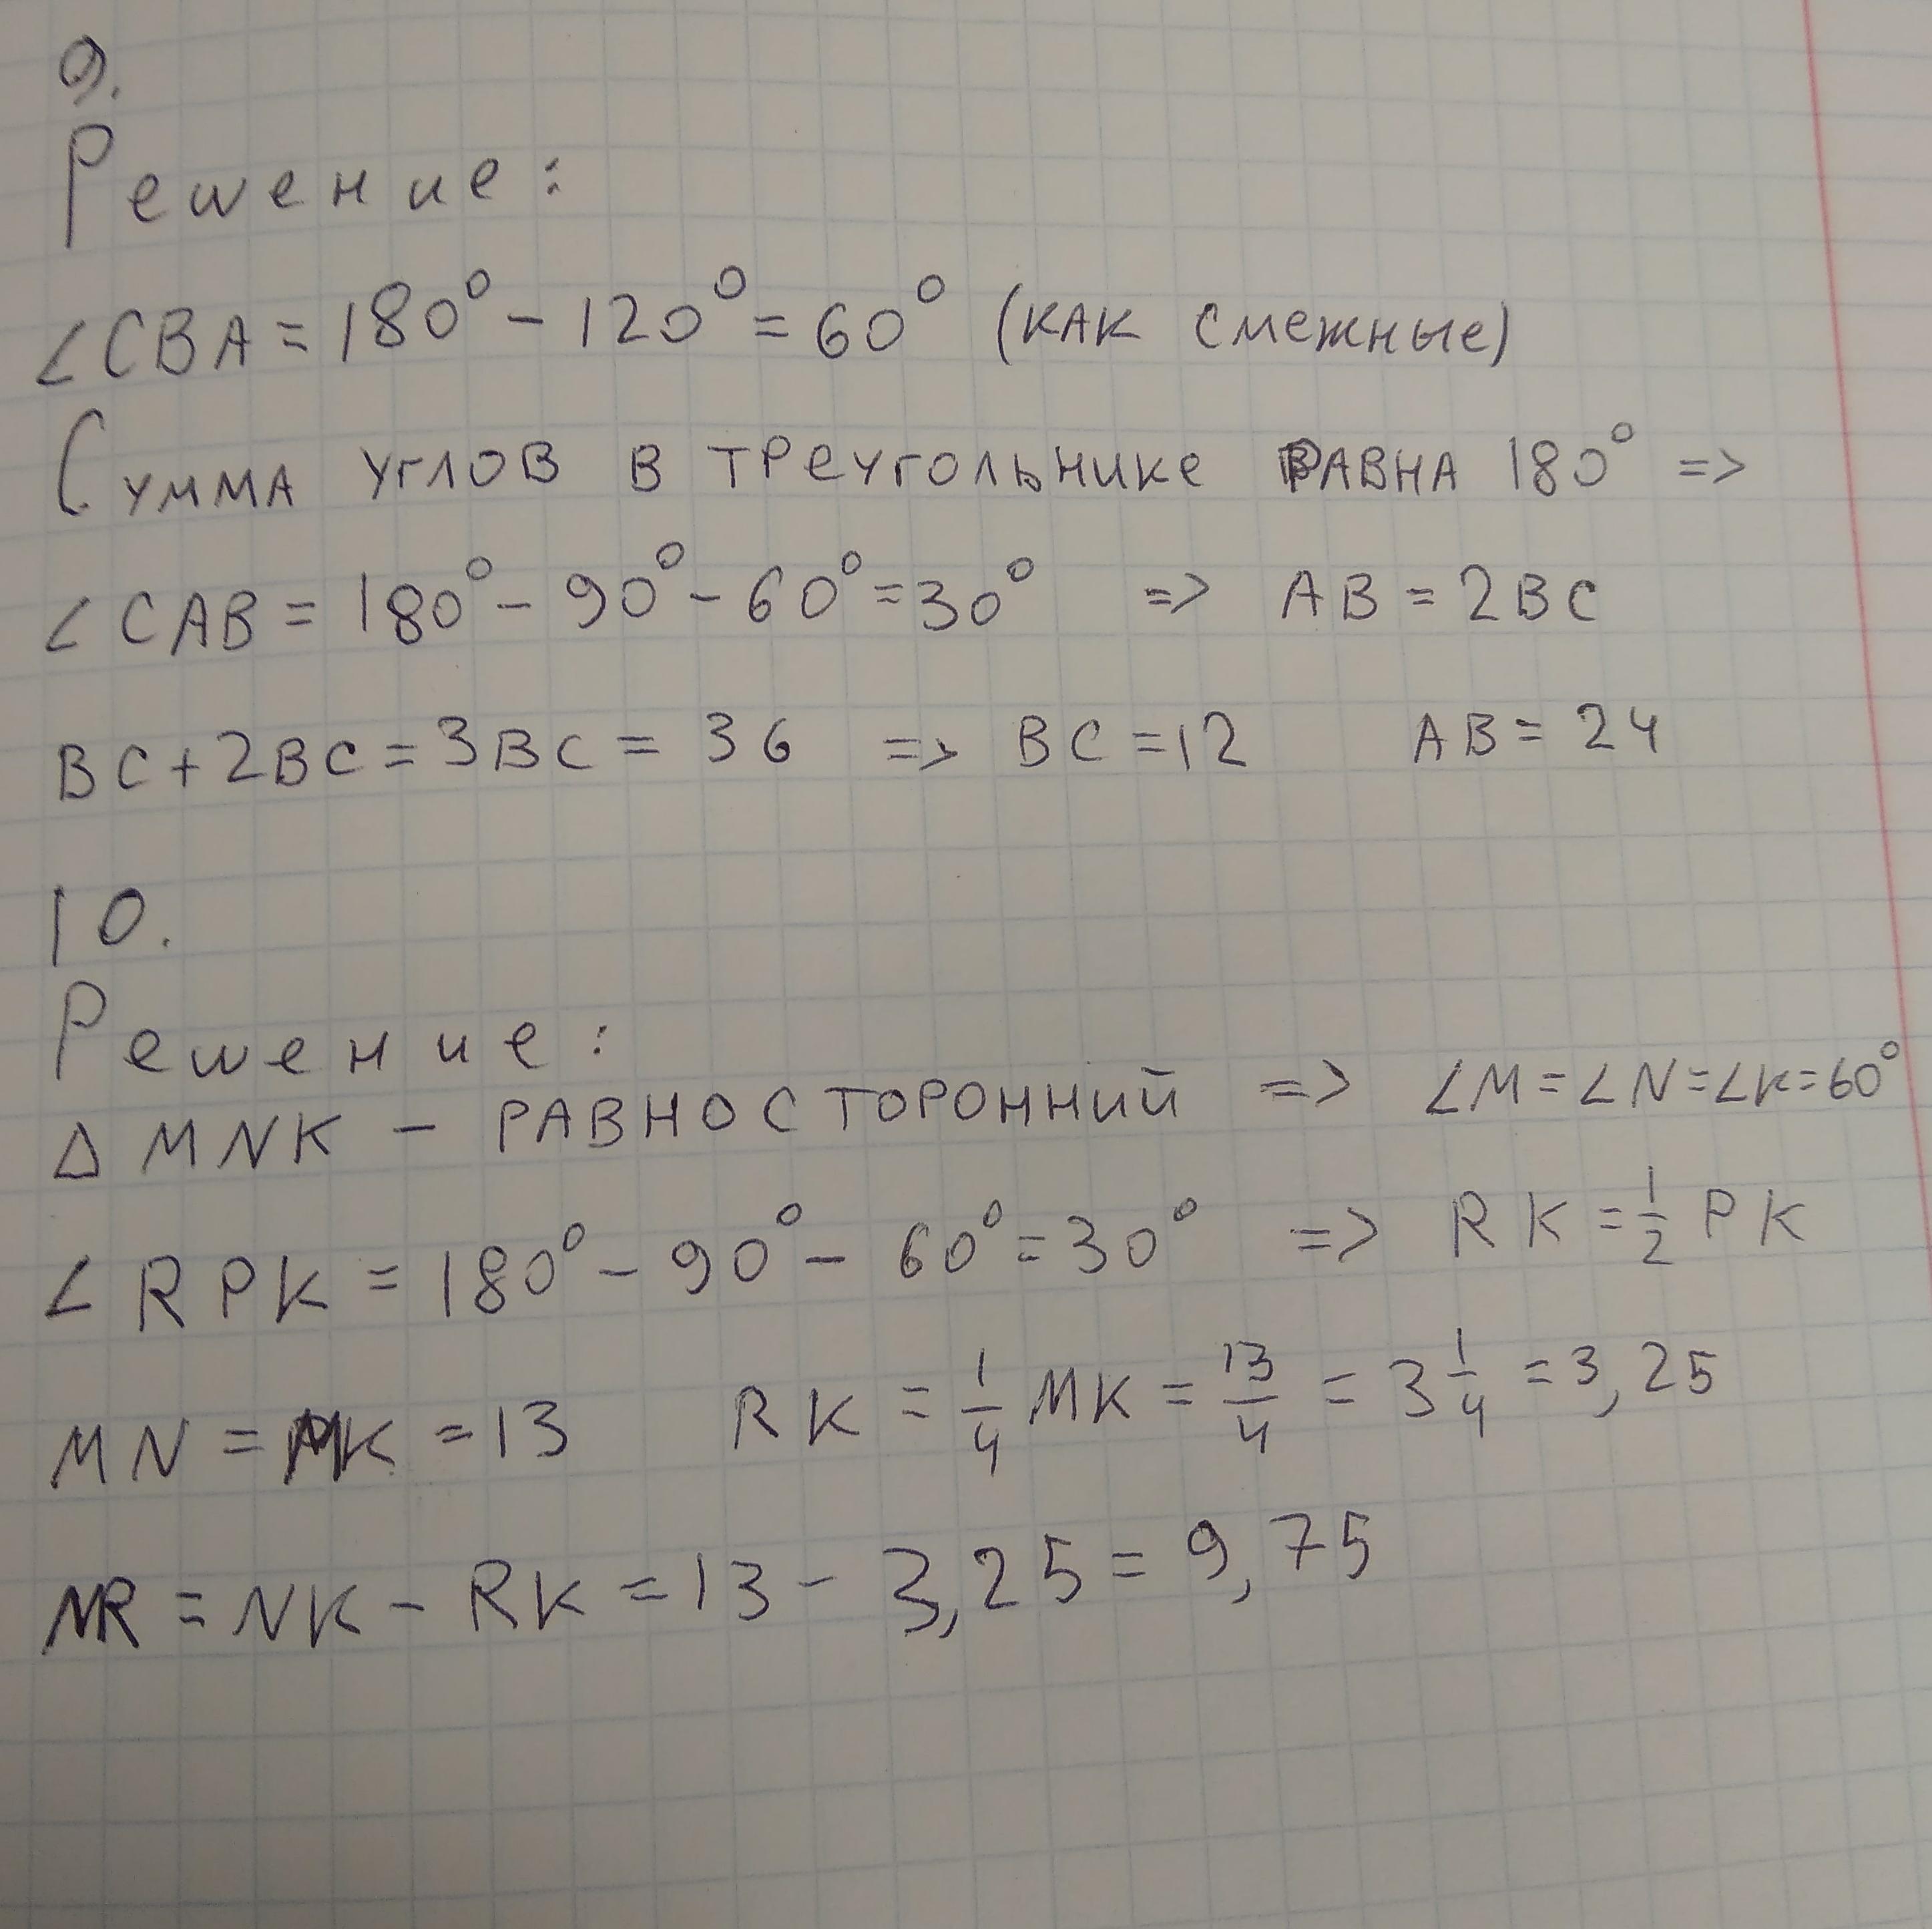 9.
Решение:
∠CBA = 180° - 120° = 60° (как смежные)
Сумма углов в треугольнике равна 180° =>
∠CAB = 180° - 90° - 60° = 30° => AB = 2BC
BC + 2BC = 3BC = 36 => BC = 12 AB = 24
10.
Решение:
Δ MNK - равносторонний => ∠M = ∠N = ∠K = 60°
∠RPK = 180° - 90° - 60° = 30° => RK = 1/2 PK
MN = MK = 13 RK = 1/4 MK = 13/4 = 3 1/4 = 3,25
NR = NK - RK = 13 - 3,25 = 9,75